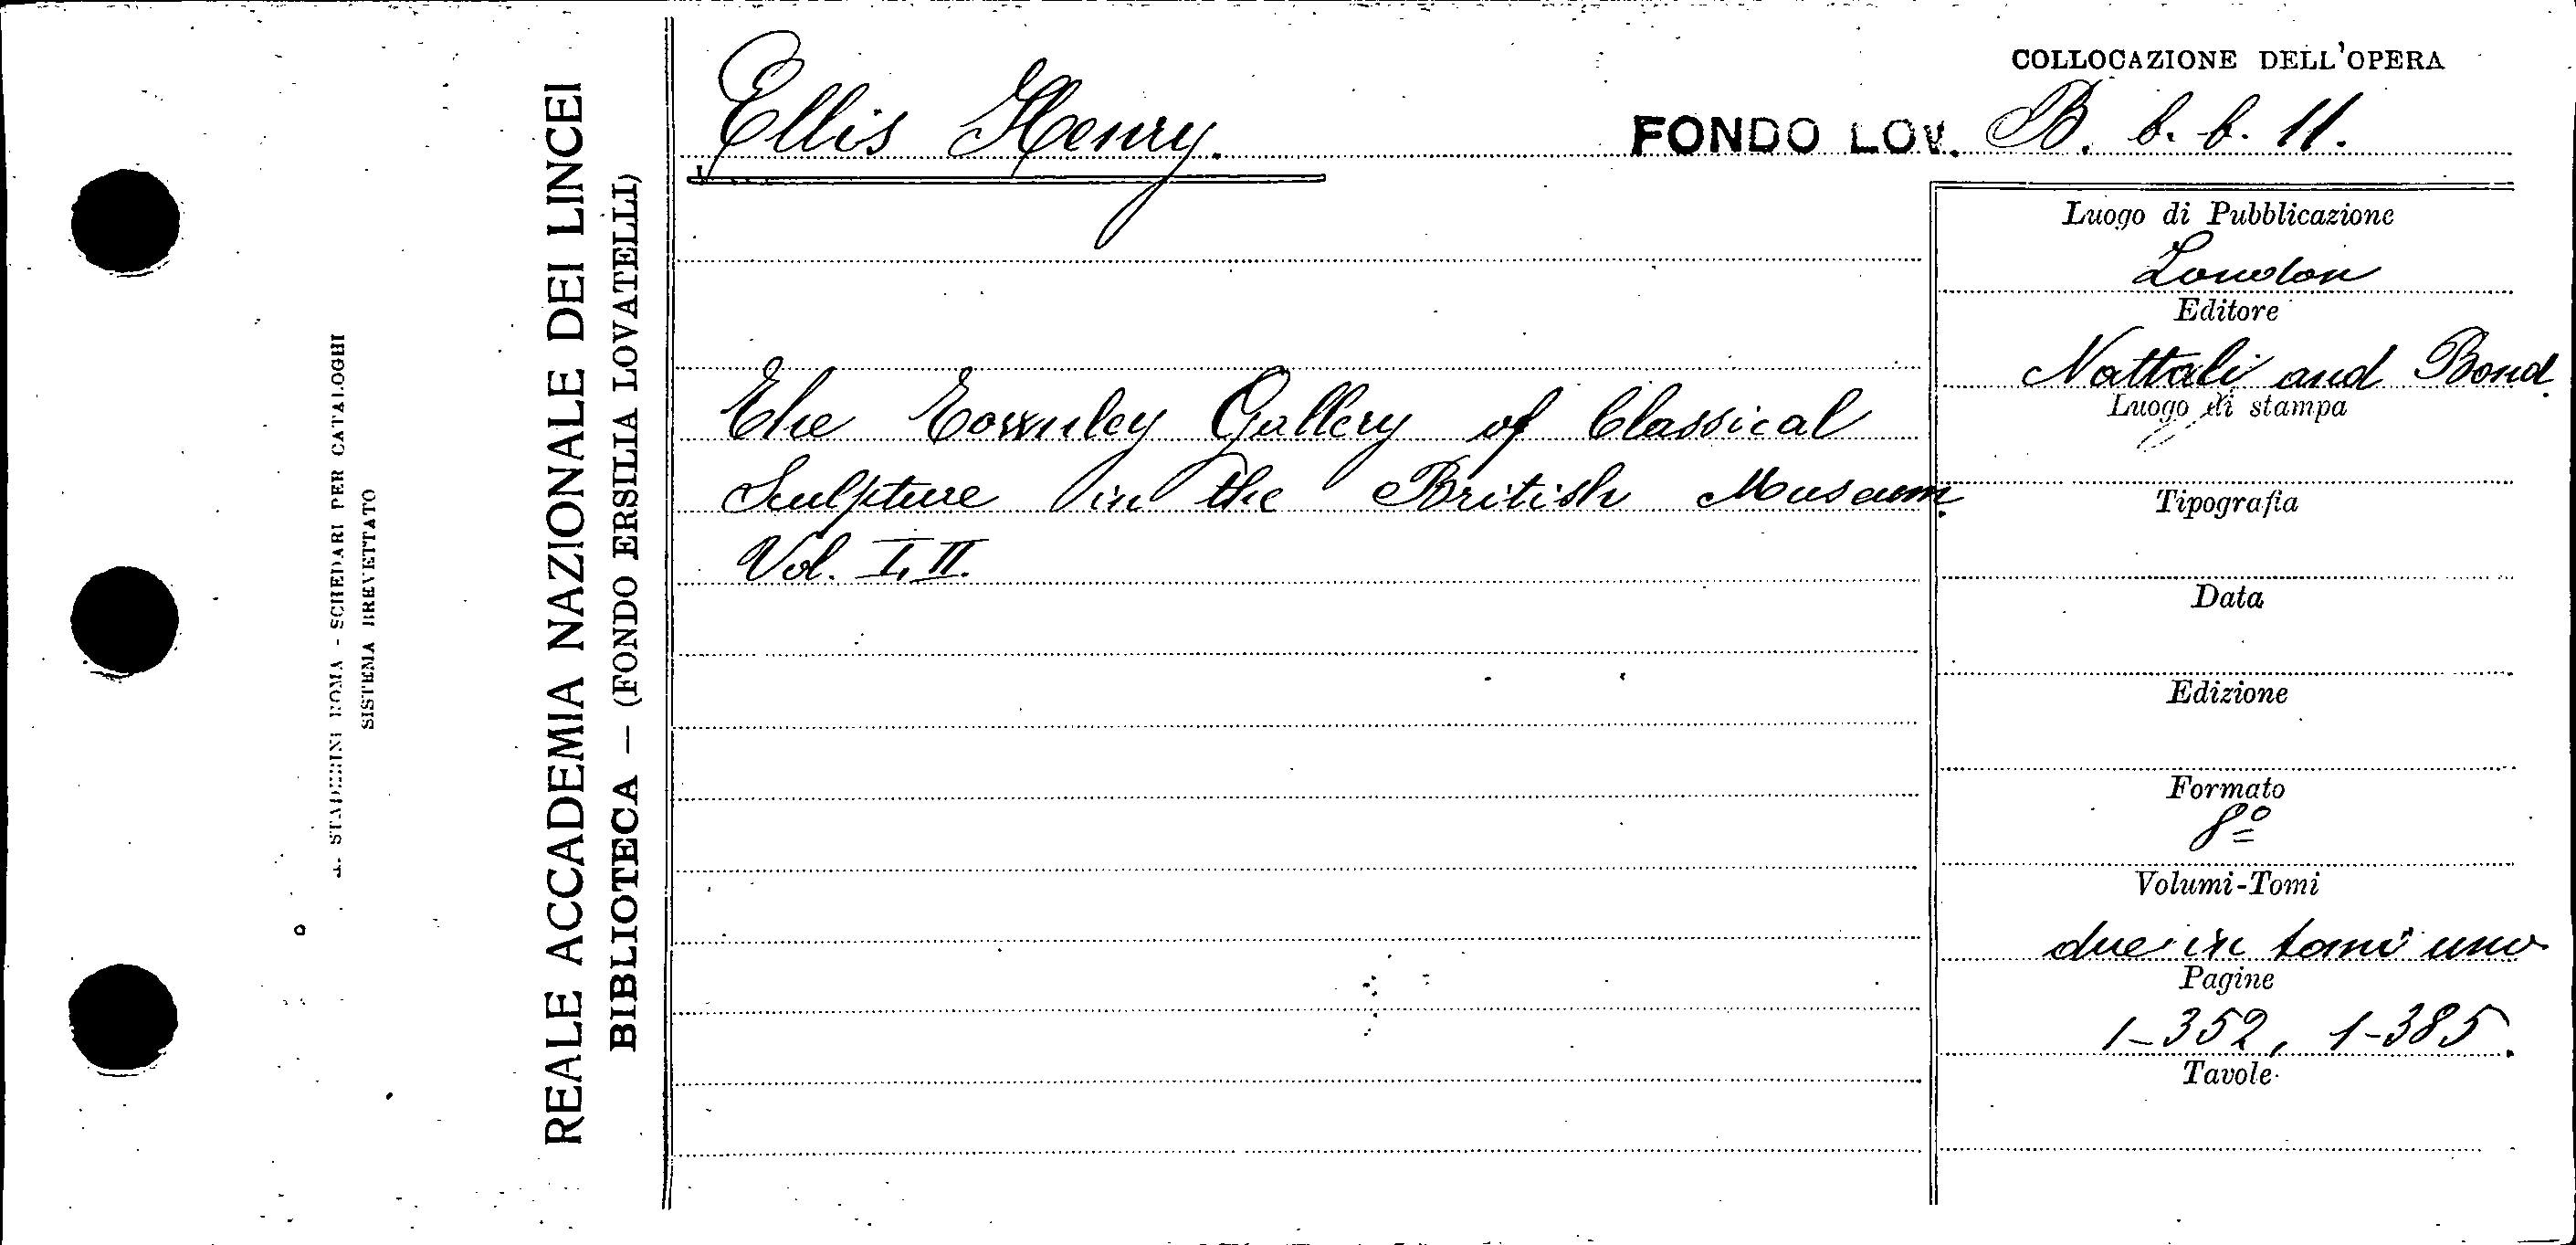 COLLOCAZIONE DELL'OPERA
Ellis Henry.
FONDO LOV. B. b. b. 11.
Luogo di Pubblicazione
London
Editore
Nattali and Bond.
Luogo di stampa
Tipografia
Data
Edizione
Formato
8º
Volumi-Tomi
due in tomi uno
Pagine
1-352, 1-385.
Tavole
The Townley Gallery of Classical
Sculpture in the British Museum.
Vol. I, II.
REALE ACCADEMIA NAZIONALE DEI LINCEI
BIBLIOTECA — (FONDO ERSILIA LOVATELLI)
STADERINI ROMA - SCHEDARI PER CATALOGHI
SISTEMA BREVETTATO